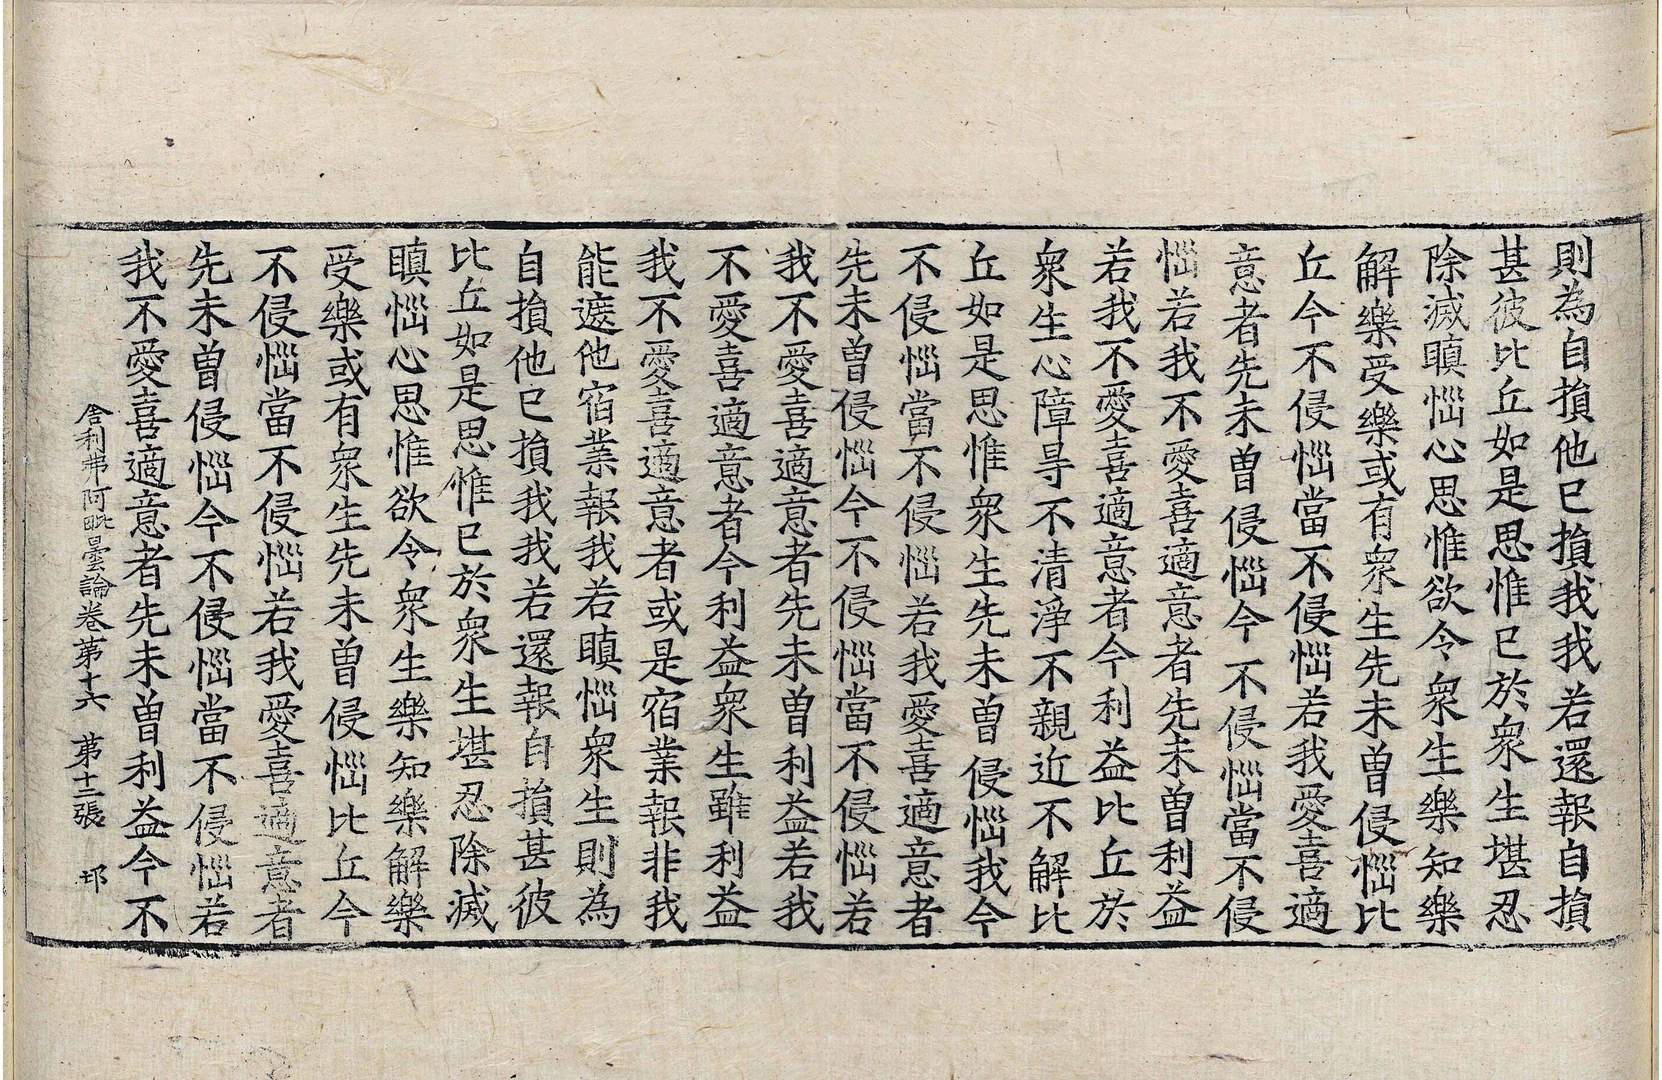 則為自損他已損我我若還報自損
甚彼比丘如是思惟已於衆生堪忍
除滅瞋惱心思惟欲令衆生樂知樂
解樂受樂或有衆生先未曽侵惱比
丘今不侵惱當不侵惱若我愛喜適
意者先未曽侵惱今不侵惱當不侵
惱若我不愛喜適意者先未曽利益
若我不愛喜適意者今利益比丘於
衆生心障㝵不清淨不親近不解比
丘如是思惟衆生先未曽侵惱我今
不侵惱當不侵惱若我愛喜適意者
先未曽侵惱今不侵惱當不侵惱若
我不愛喜適意者先未曽利益若我
不愛喜適意者今利益衆生雖利益
我不愛喜適意者或是宿業報非我
能遮他宿業報我若瞋惱衆生則為
自損他已損我我若還報自損甚彼
比丘如是思惟已於衆生堪忍除滅
瞋惱心思惟欲令衆生樂知樂解樂
受樂或有衆生先未曽侵惱比丘今
不侵惱當不侵惱若我愛喜適意者
先未曽侵惱今不侵惱當不侵惱若
我不愛喜適意者先未曽利益今不
舍利弗阿毗曇論卷第十六 第十二張